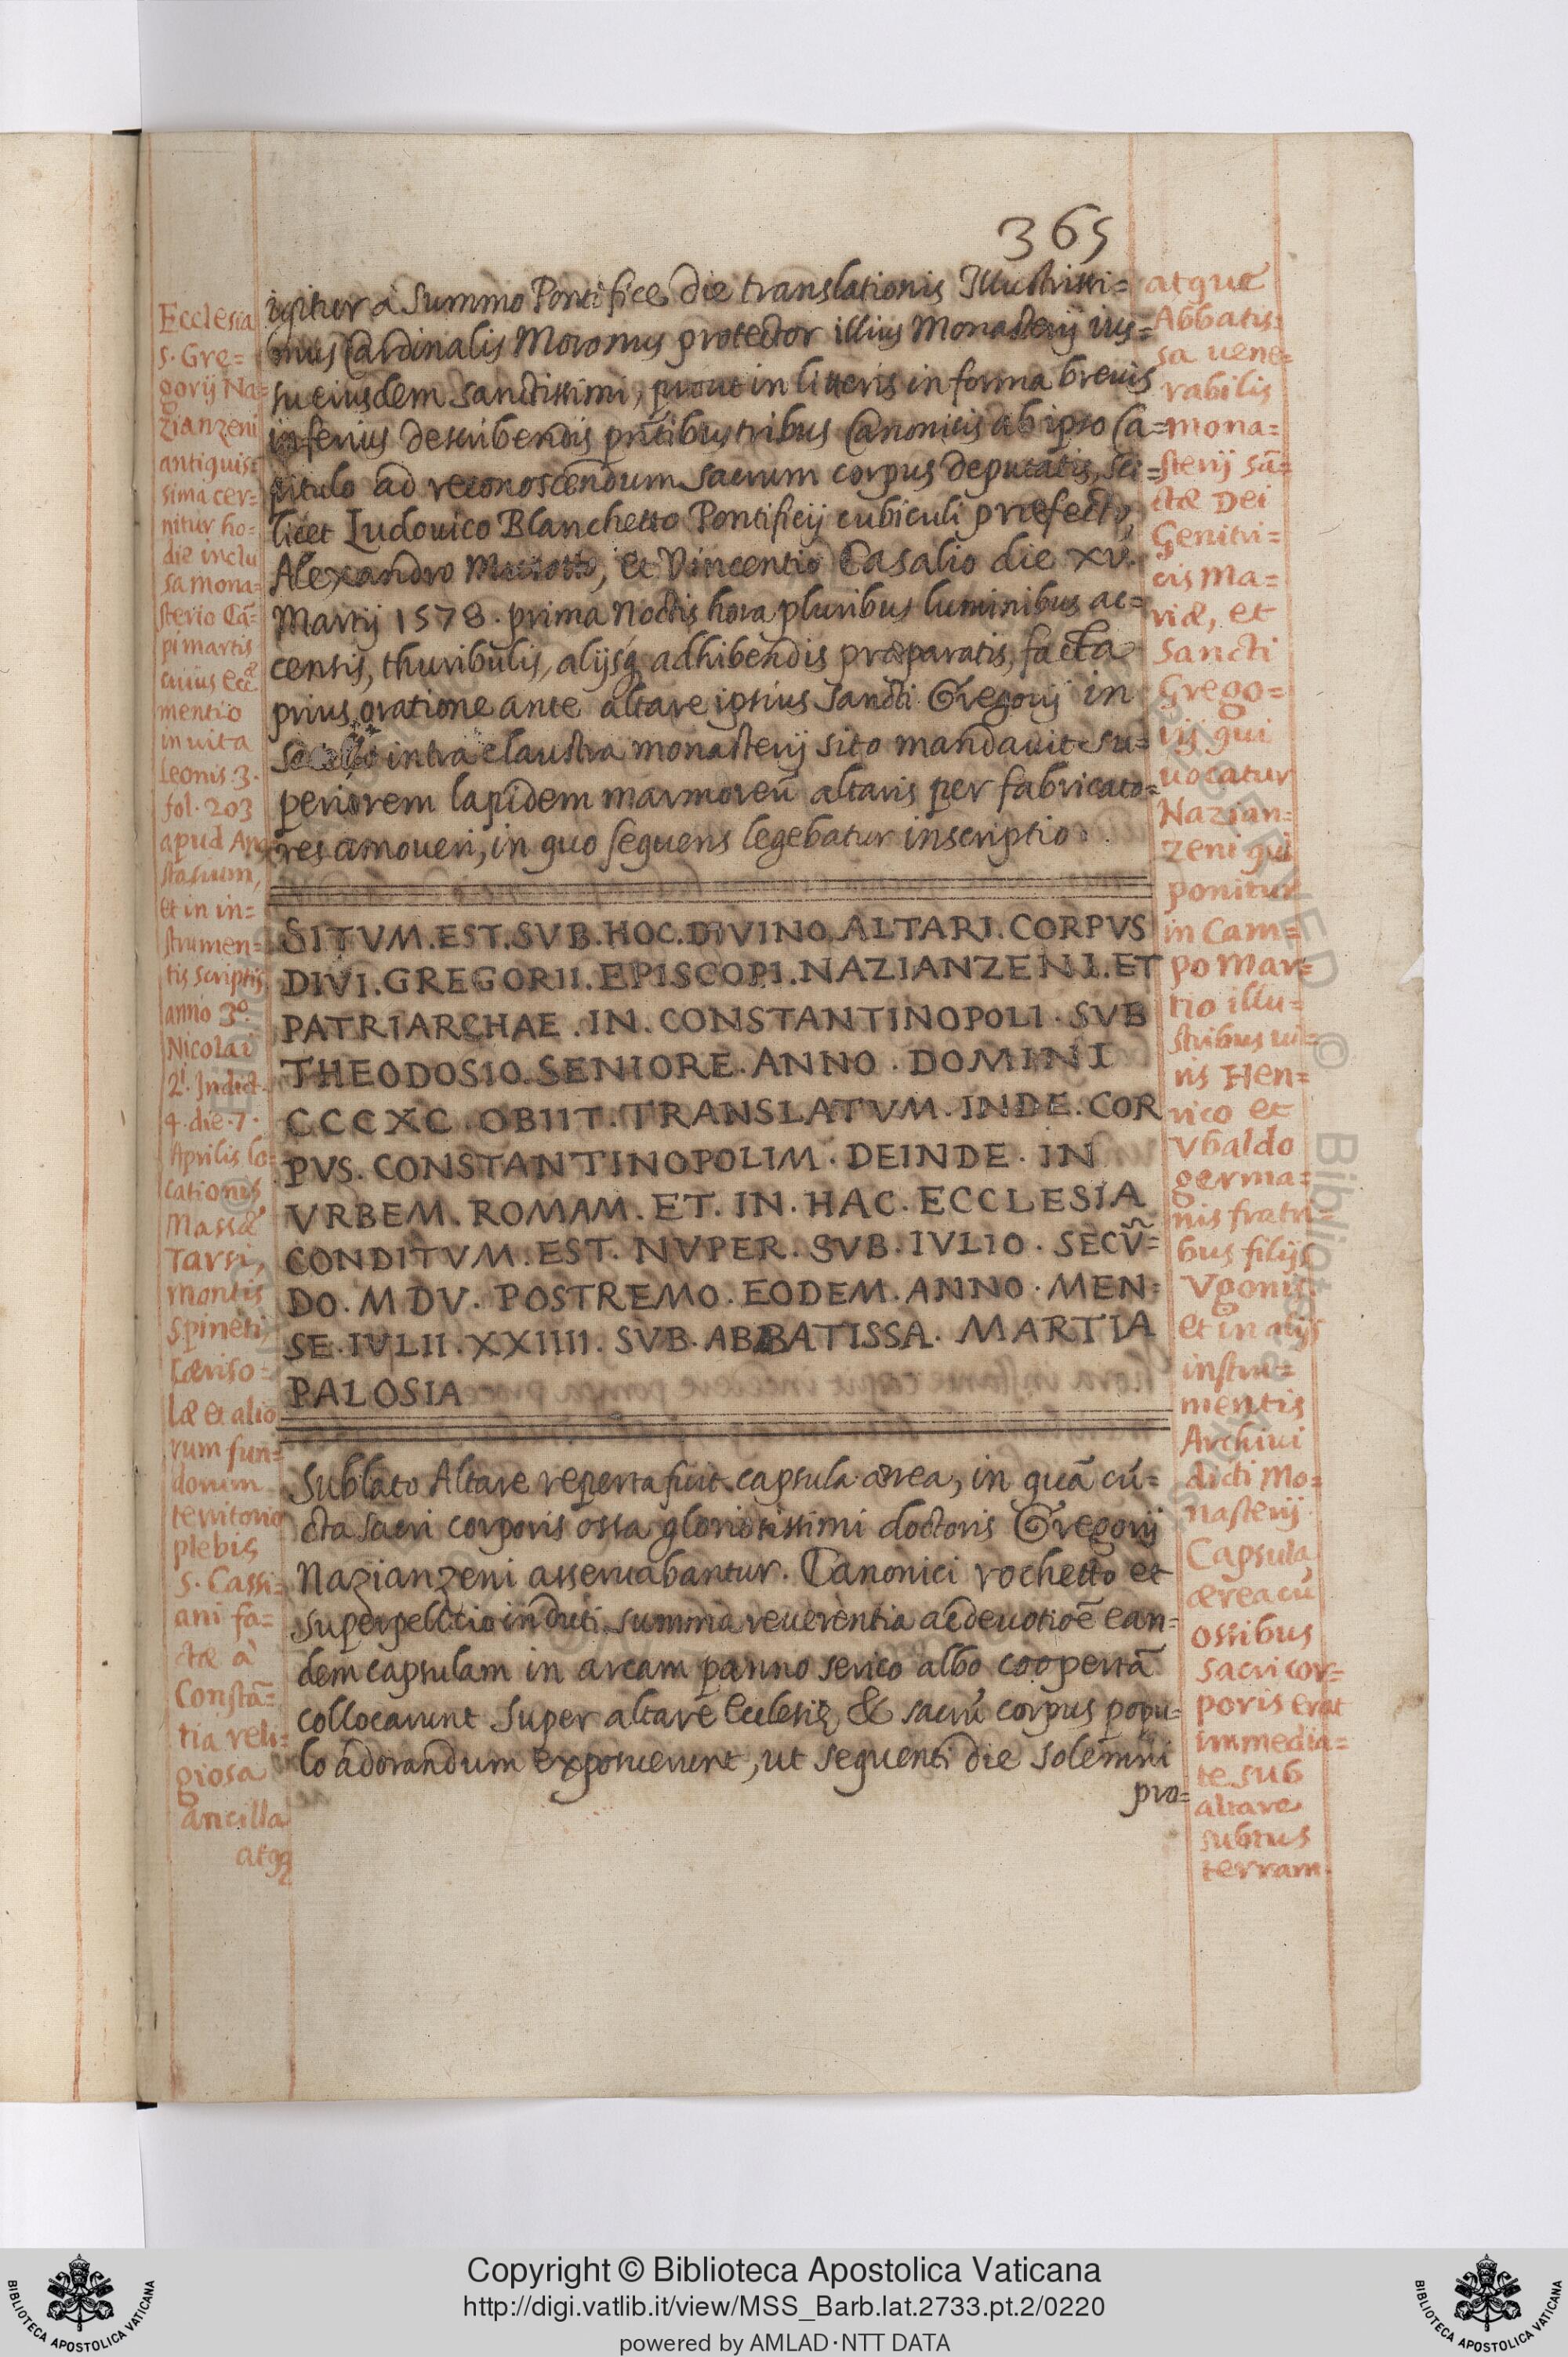 365
igitur a Summo Pontifice die translationis Illustrissi=
mus Cardinalis Moronus protector illius Monasterij ius=
su eiusdem sanctissimi, prout in litteris in forma brevis
inferius describendis pñtibus tribus Canonicis ab ipso Ca=
pitulo ad reconoscendum sacrum corpus deputatis, sci=
licet Ludovico Blanchetto Pontificij cubiculi præfecto,
Alexandro et Vincentio Casalio die xv.
Martij 1578. prima Noctis hora pluribus luminibus ac=
censis, thuribulis, alijsq; adhibendis præparatis, facta
prius oratione ante altare ipsius Sancti Gregorij in
sacello intra claustra monasterij sito mandavit su=
periorem lapidem marmoreũ altaris per fabricato=
res amoveri, in quo sequens legebatur inscriptio.
SITVM.EST.SVB.HOC.DIVINO.ALTARI.CORPVS
DIVI.GREGORII.EPISCOPI.NAZIANZENI.ET
PATRIARCHAE.IN.CONSTANTINOPOLI.SVB
THEODOSIO.SENIORE.ANNO.DOMINI
CCCXC.OBIIT.TRANSLATVM.INDE.COR
PVS.CONSTANTINOPOLIM.DEINDE.IN
VRBEM.ROMAM.ET.IN.HAC.ECCLESIA
CONDITVM.EST.NVPER.SVB.IVLIO.SECṼ=
DO.MDV.POSTREMO.EODEM.ANNO.MEN=
SE.IVLII.XXIIII.SVB.ABBATISSA.MARTIA
PALOSIA
Sublato Altare reperta fuit capsula ærea, in quã cũ=
cta sacri corporis ossa gloriosissimi doctoris Gregorij
Nazianzeni asservabantur. Canonici rochetto et
superpelliceo induti, summa reverentia ac devotioẽ ean=
dem capsulam in arcam panno serico albo coopertã
collocarunt super altare Ecclesiæ, & sacrũ corpus popu=
lo adorandum exposuerunt, ut sequenti die solemni
pro=
Ecclesia
S. Gre=
gorij Na=
zianzeni
antiquis
sima cer=
nitur ho=
die inclu
sa mona=
sterio Cã=
pi martis
cuius eccᵃᵉ
mentio
in vita
Leonis 3.
fol. 203
apud Ana
stasium,
et in in=
strumen=
tis scriptis
anno 3º.
Nicolai
2ⁱ. Indict.
4. die 7.
Aprilis lo=
cationis
Massæ
Tarsi,
montis
Spineti,
Cæriso=
læ et alio
rum fun=
dorum
territorio
plebis
S. Cassi=
ani fa=
ctæ à
Constã=
tia reli=
giosa
ancilla
atqȝ
atque
Abbatis=
sa vene=
rabilis
mona=
sterij sã=
ctæ Dei
Genitri=
cis Ma=
riæ, et
Sancti
Grego=
rij qui
vocatur
Nazian=
zeni qui
ponitur
in Cam=
po Mar=
tio illu=
stribus vi=
ris Hen=
rico et
Vbaldo
germa=
nis fratri=
bus filijs
Vgonis
et in alijs
instru=
mentis
Archivi
dicti Mo=
nasterij.
Capsula
ærea cũ
ossibus
sacri cor=
poris erat
immedia=
te sub
altare
subtus
terram.
Copyright © Biblioteca Apostolica Vaticana
http://digi.vatlib.it/view/MSS_Barb.lat.2733.pt.2/0220
powered by AMLAD·NTT DATA
BIBLIOTECA APOSTOLICA VATICANA
BIBLIOTECA APOSTOLICA VATICANA